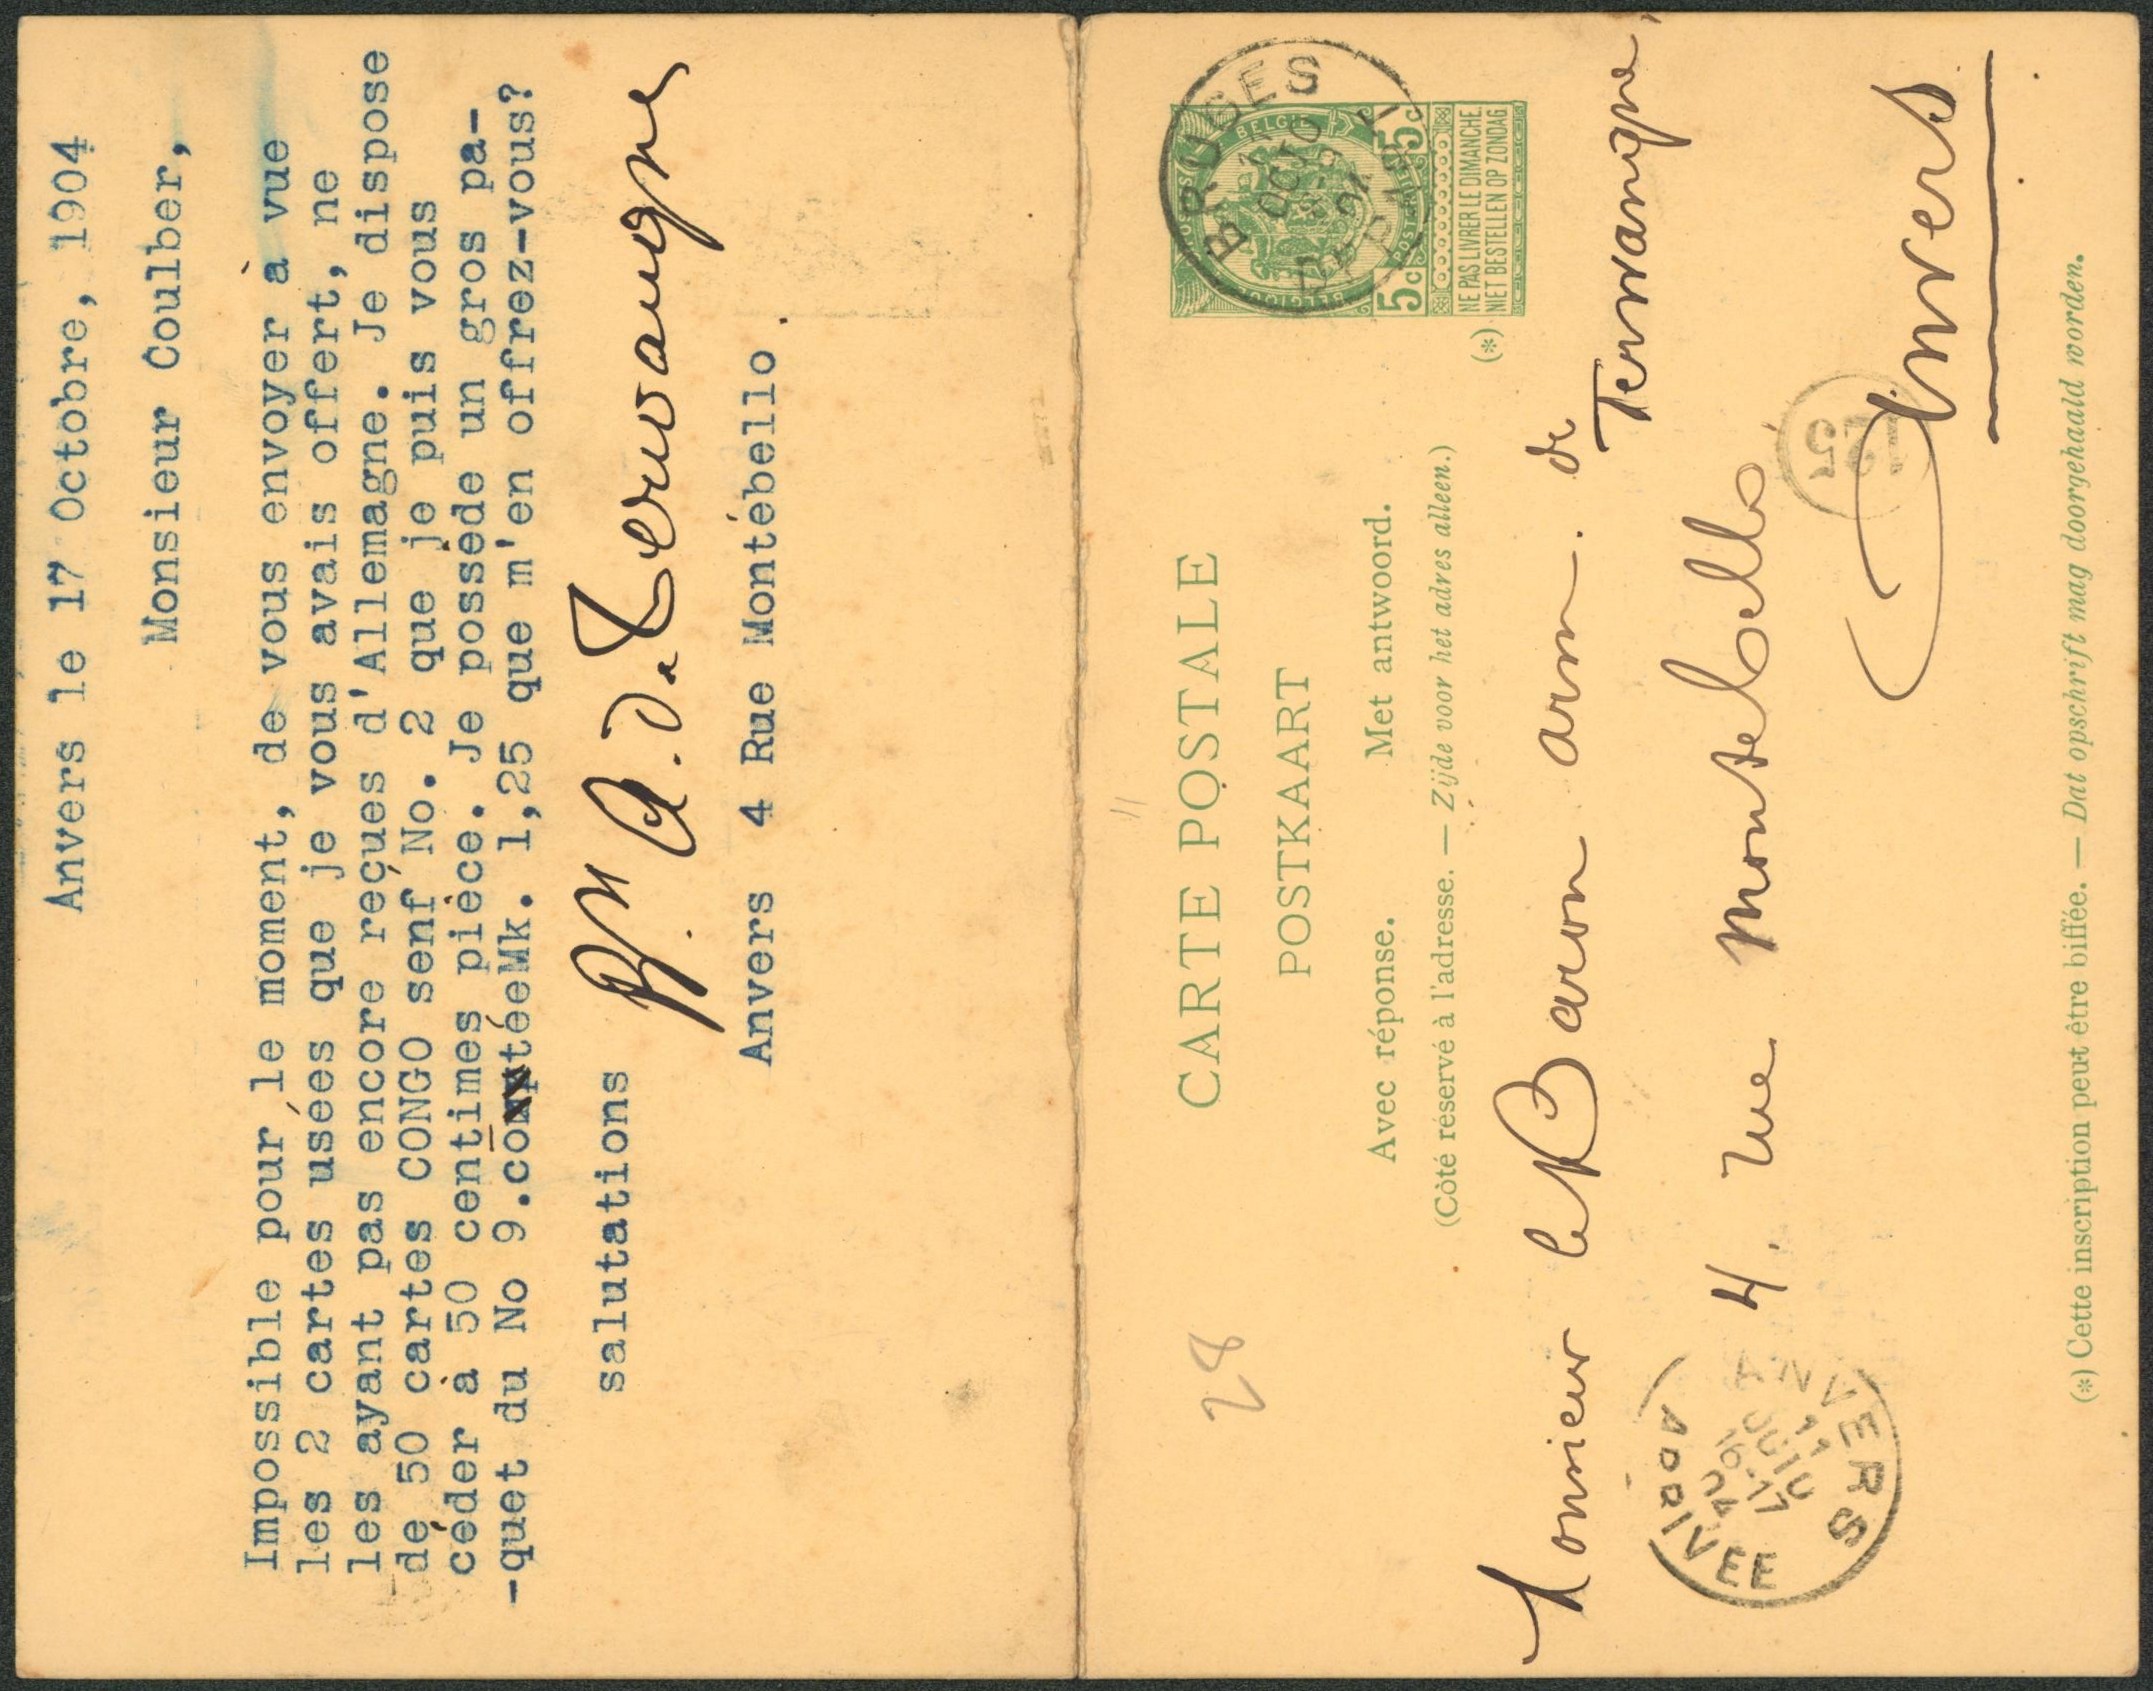 Anvers le 17 Octobre, 1904
Monsieur Coulber,
Impossible pour le moment, de vous envoyer à vue
les 2 cartes usées que je vous avais offert, ne
les ayant pas encore reçues d'Allemagne. Je dispose
de 50 cartes CONGO senf No. 2 que je puis vous
céder à 50 centimes pièce. Je possède un gros pa-
-quet du No 9. comptée Mk. 1,25 que m'en offrez-vous?
salutations
A. de Terwangne
Anvers 4 Rue Montébello
CARTE POSTALE
POSTKAART
Avec réponse. Met antwoord.
(Côté réservé à l'adresse. — Zijde voor het adres alleen.)
BRUGES
DÉPART
BELGIQUE BELGIË
POSTES POSTERIJEN
5c 5c
NE PAS LIVRER LE DIMANCHE
NIET BESTELLEN OP ZONDAG
(*)
28
Monsieur le Baron arm. de
Terwangne,
4. rue Montebello
Anvers
ANVERS
16-17
04
ARRIVÉE
(*) Cette inscription peut être biffée. — Dat opschrift mag doorgehaald worden.